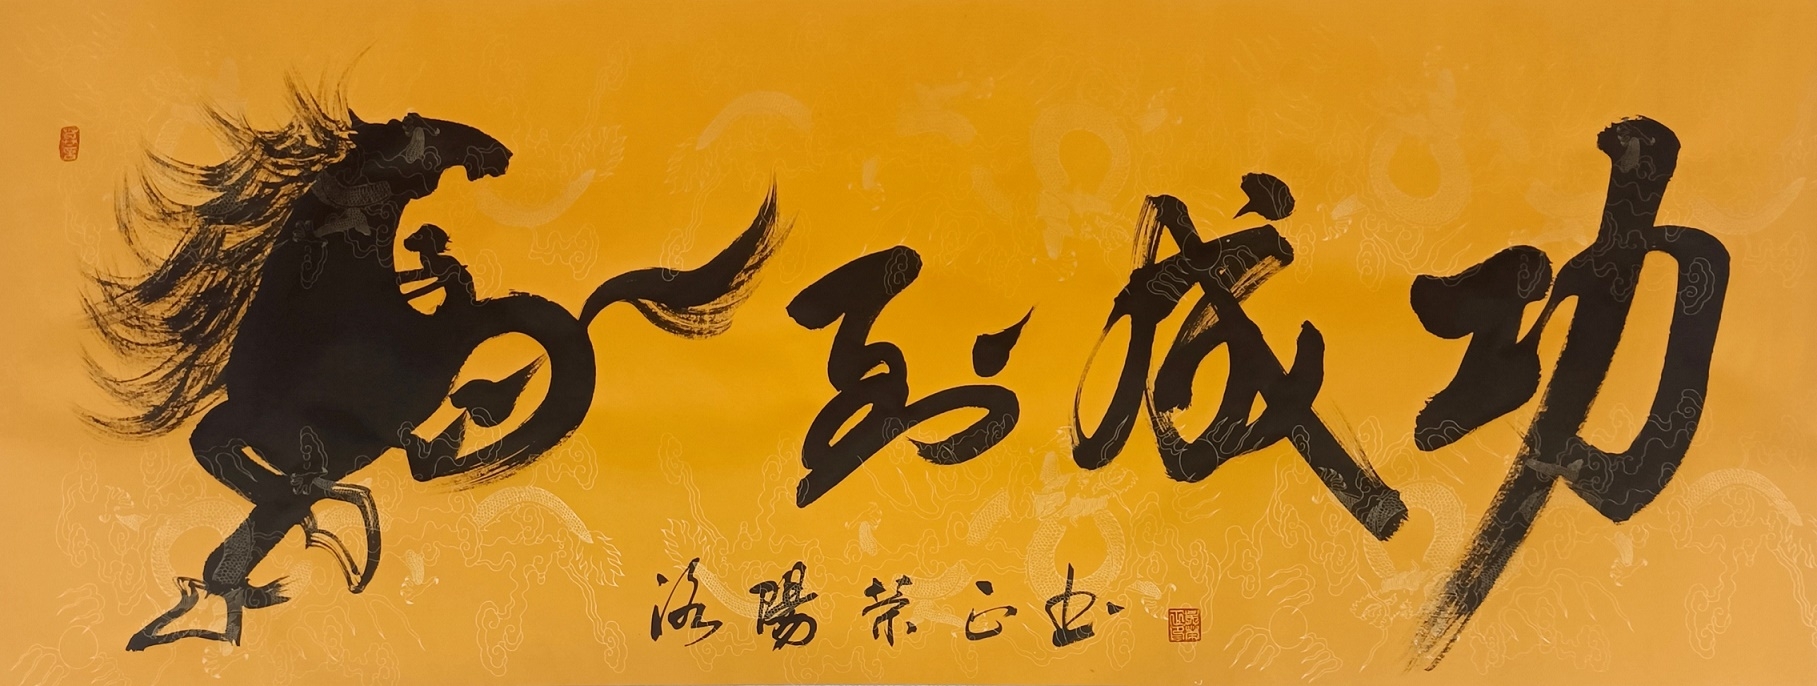 馬到成功
洛陽荣正书